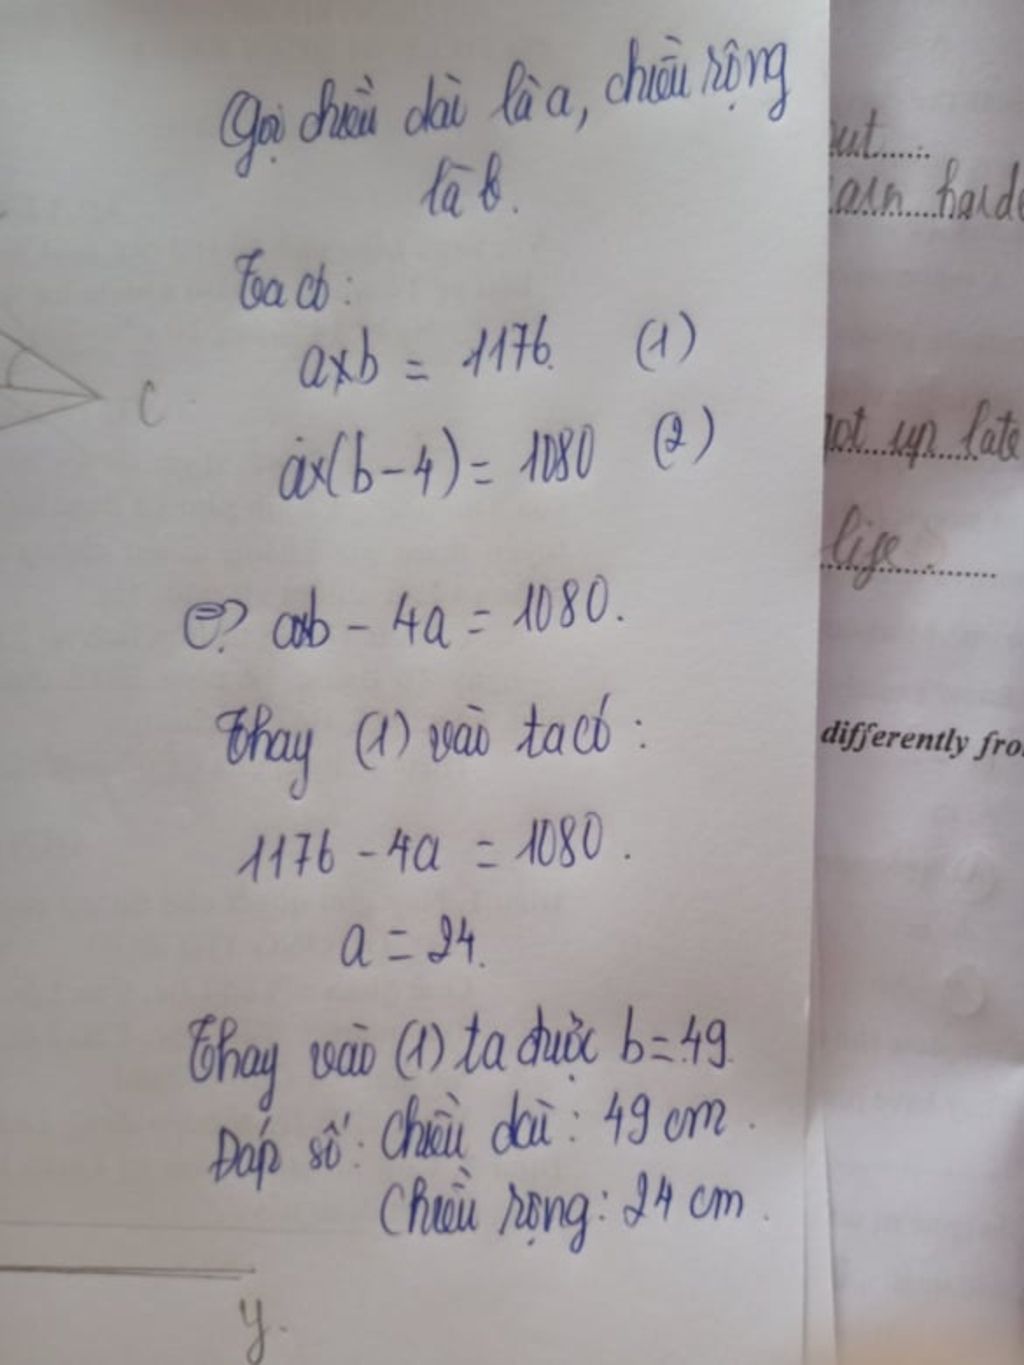 Gọi chiều dài là a, chiều rộng
là b.
Ta có:
axb = 1176. (1)
ax(b-4) = 1080 (2)
axb - 4a = 1080.
Thay (1) vào ta có :
1176 - 4a = 1080.
a = 24.
Thay vào (1) ta được b = 49
Đáp số: Chiều dài: 49 cm.
Chiều rộng: 24 cm.
C
y.
ut......
arn harde
not up late
life
differently fro